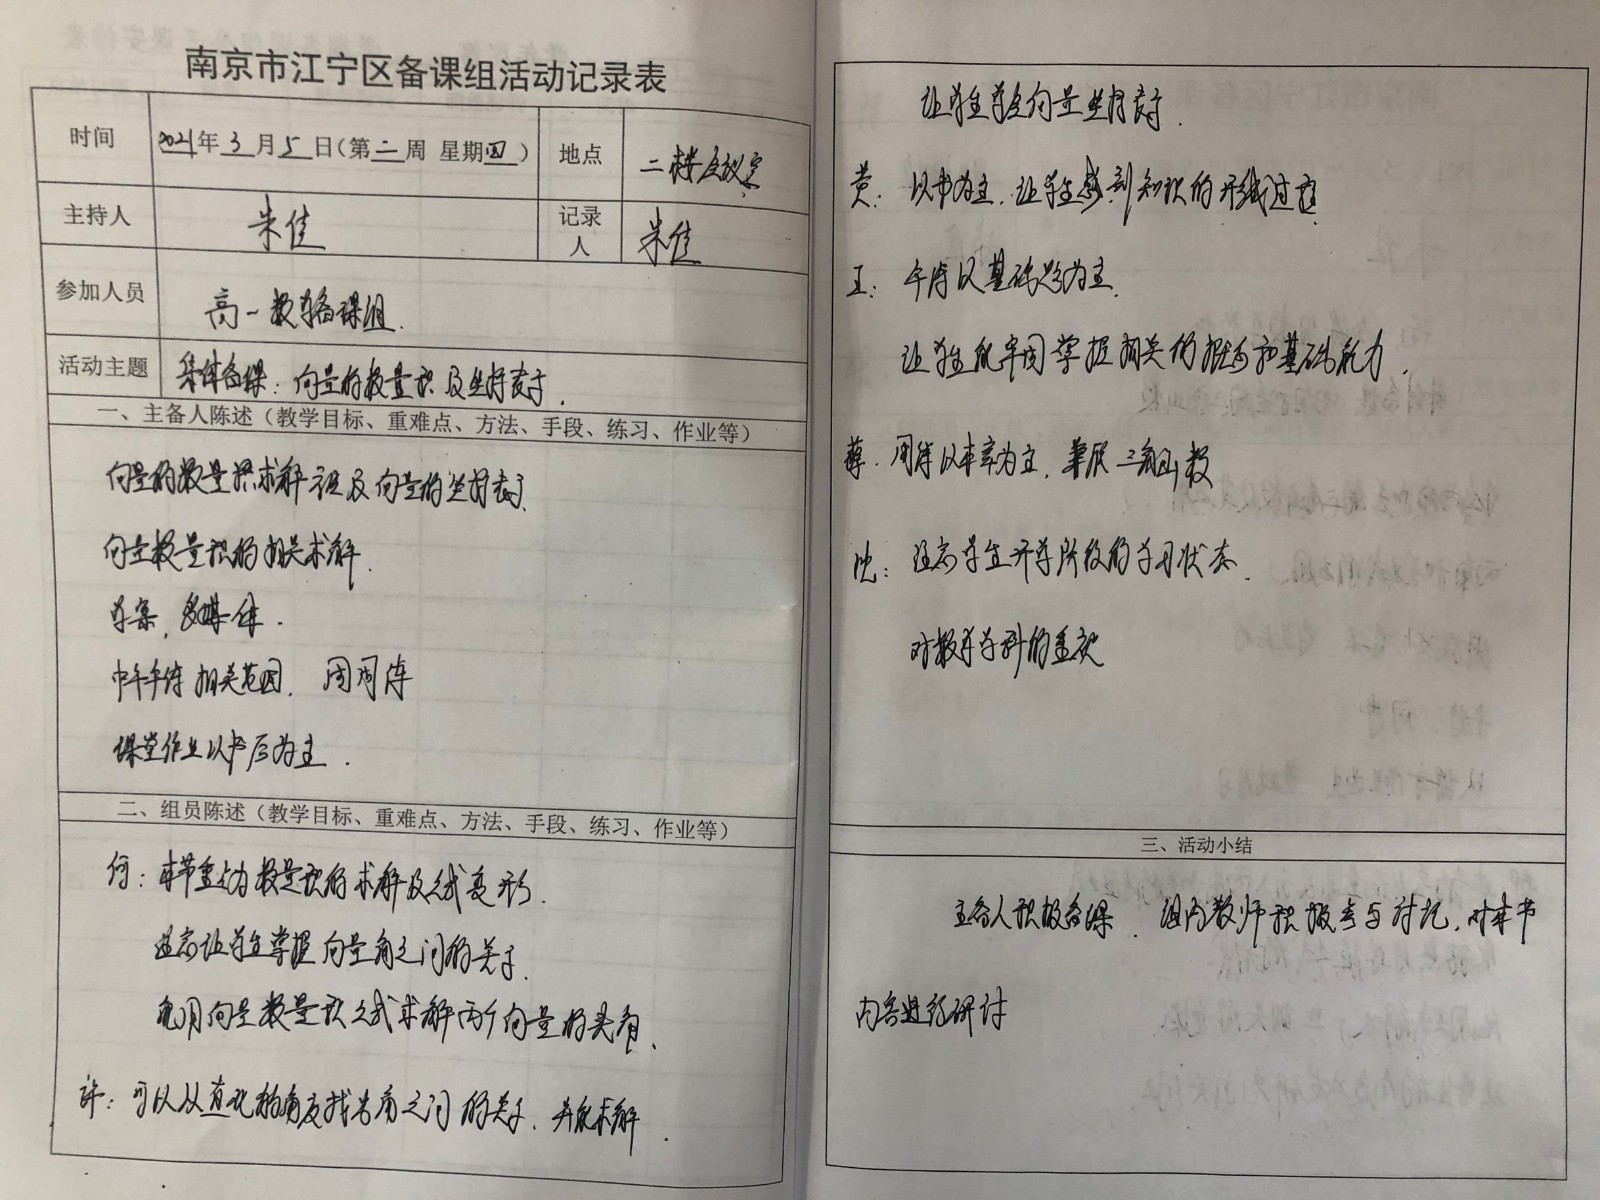 南京市江宁区备课组活动记录表
时间 2021年3月5日(第二周 星期四) 地点 二楼会议室
主持人 朱佳 记录人 朱佳
参加人员 高一数学备课组.
活动主题 集体备课：向量的数量积及坐标表示.
一、主备人陈述（教学目标、重难点、方法、手段、练习、作业等）
向量的数量积求解 及向量的坐标表示
向量数量积的相关求解.
学案，多媒体.
中午午练相关范围. 周周练
课堂作业以书后为主.
二、组员陈述（教学目标、重难点、方法、手段、练习、作业等）
何：本节重点为数量积的求解及公式变形.
注意让学生掌握向量角之间的关系.
利用向量数量积公式求解两个向量的夹角.
许：可以从直观的角度找出角之间的关系.并能求解.
让学生学会向量坐标表示.
黄：以书为主.让学生感到知识的形成过程
王：午练以基础题为主.
让学生能牢固掌握相关的概念和基础能力.
蒋.周练以本章为主，兼顾三角函数
沈：注意学生开学阶段的学习状态.
对数学学科的喜欢
三、活动小结
主备人积极备课.组内教师积极参与讨论，对本节
内容进行研讨